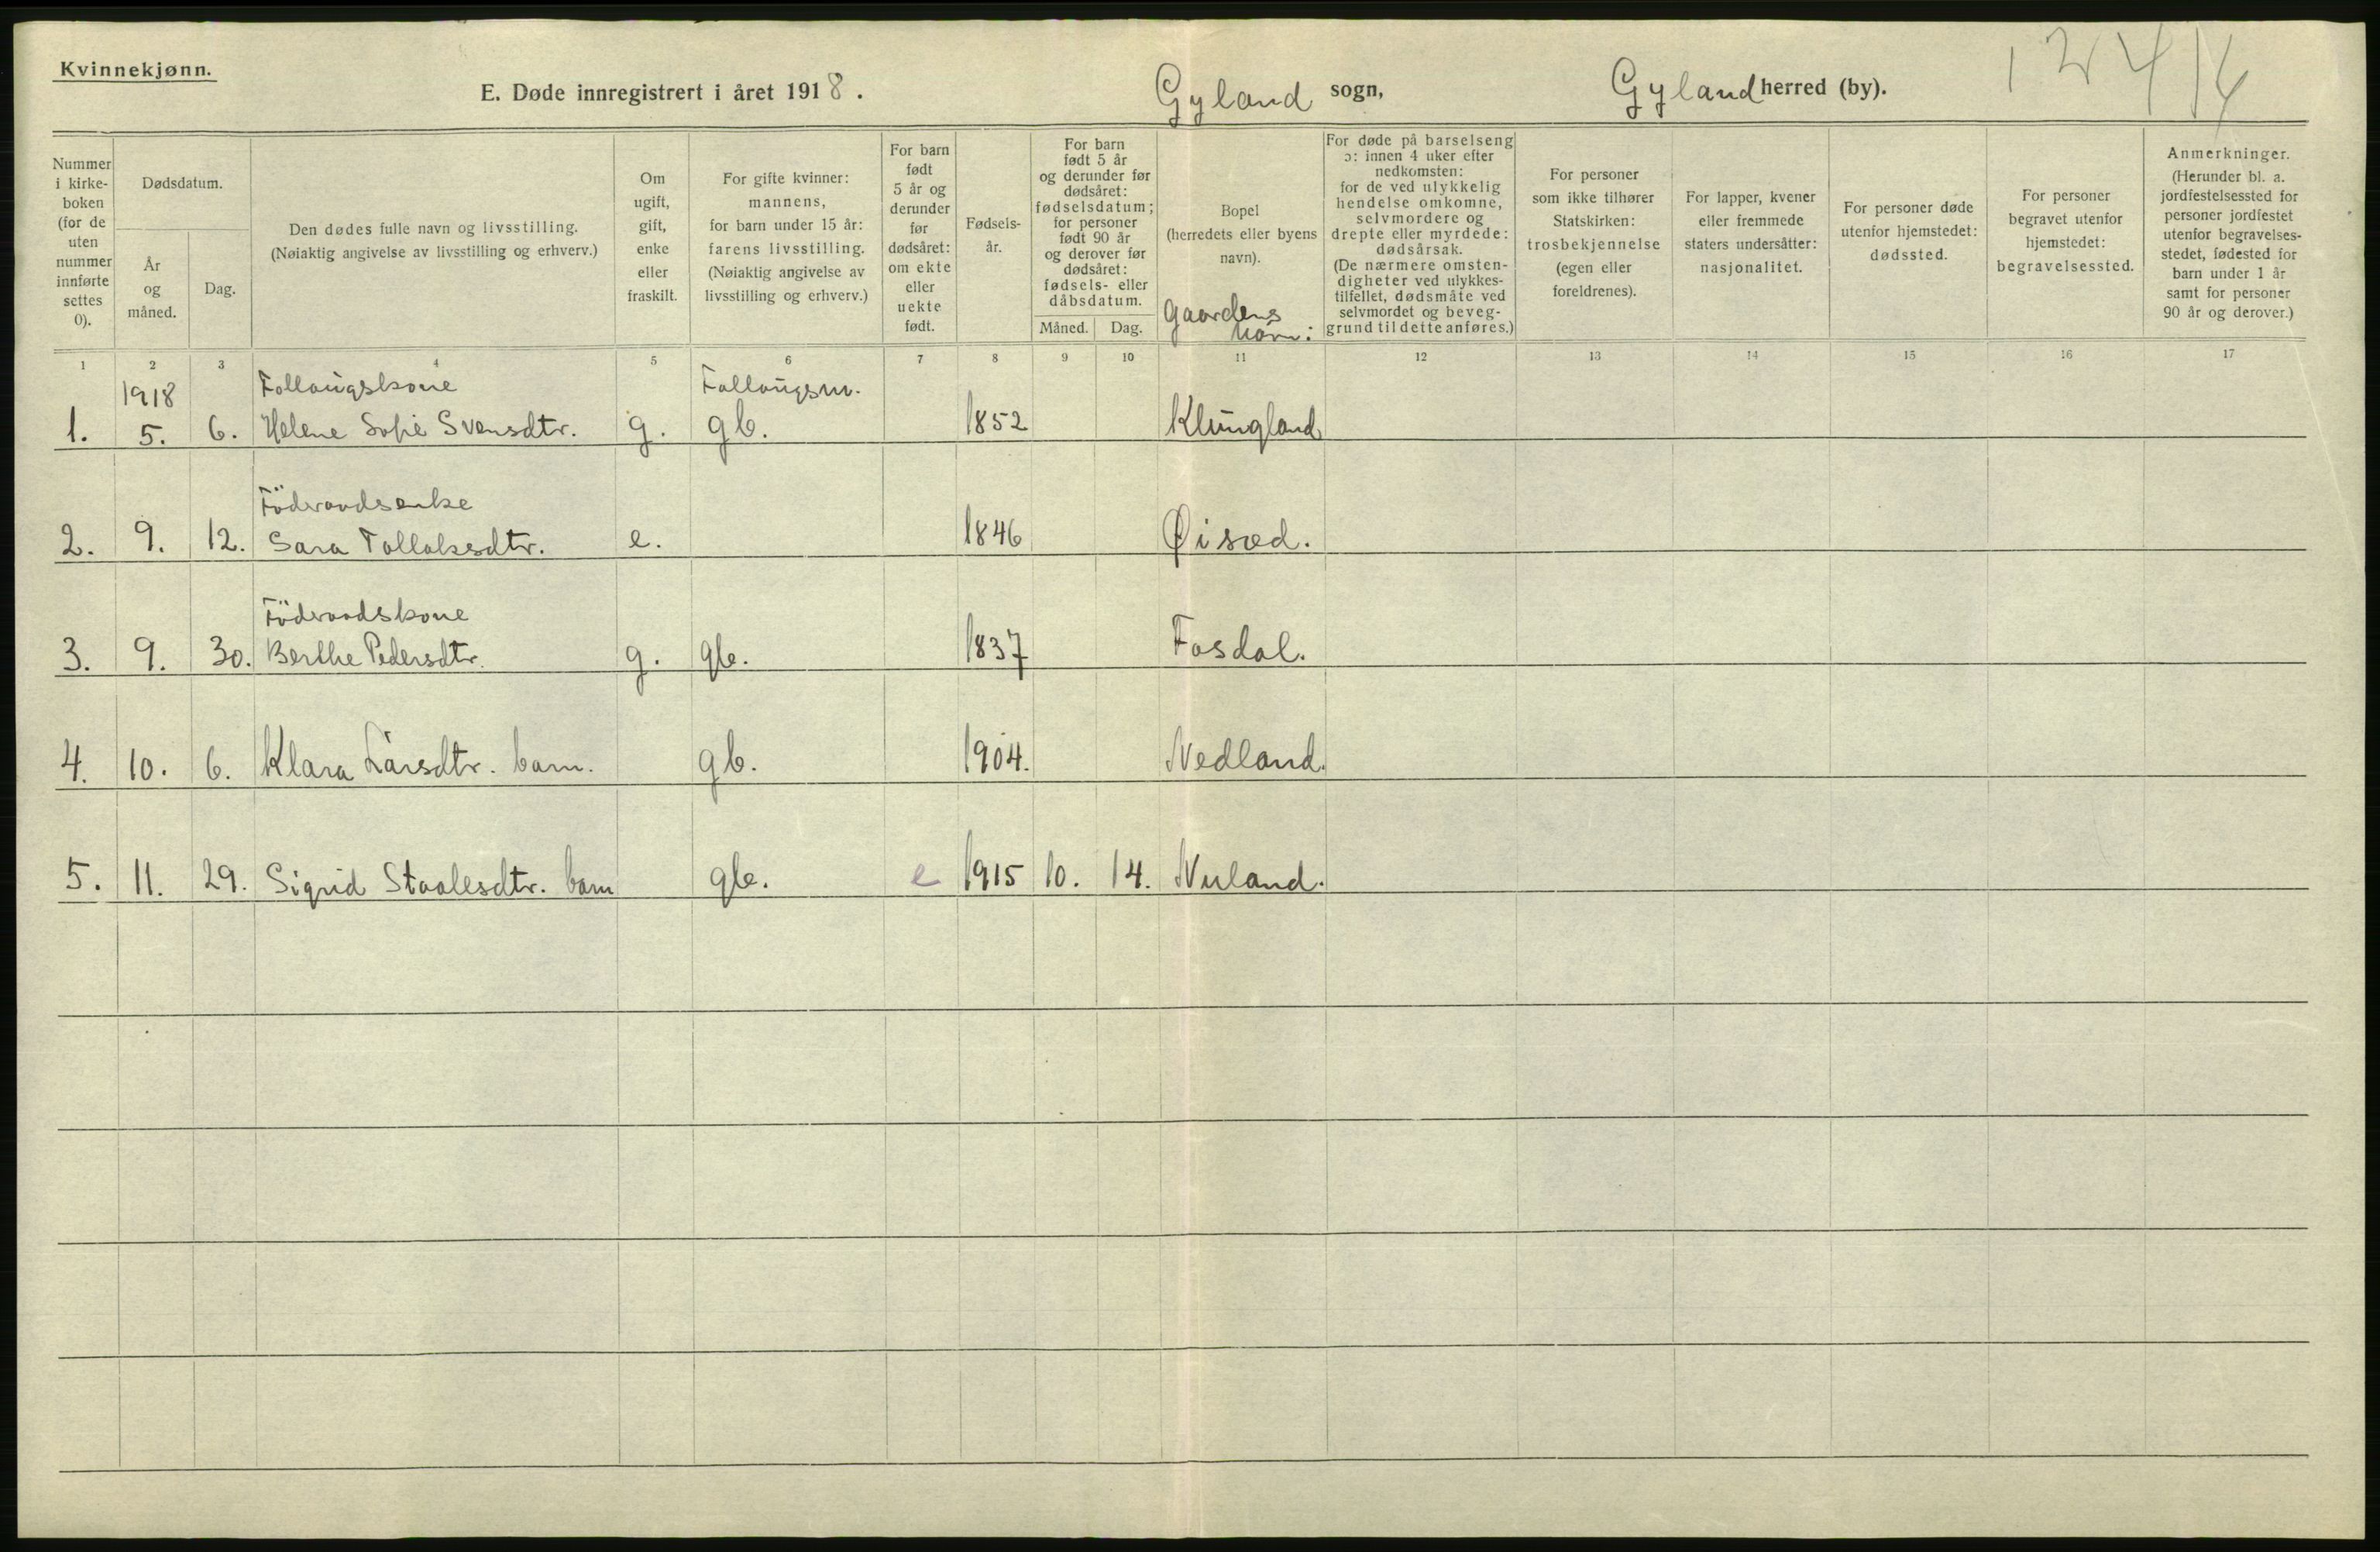 Kvinnekjønn.
E. Døde innregistrert i året 1918. Gyland sogn, Gyland herred (by).
Nummer i kirke- boken (for de uten nummer innførte settes 0).
Dødsdatum.
År og måned.
Dag.
Den dødes fulle navn og livsstilling.
(Nøiaktig angivelse av livsstilling og erhverv.)
Om ugift, gift, enke eller fraskilt.
For gifte kvinner: mannens, for barn under 15 år: farens livsstilling. (Nøiaktig angivelse av livsstilling og erhverv.)
For barn født 5 år og derunder før dødsåret: om ekte eller uekte født.
Fødsels- år.
For barn født 5 år og derunder før dødsåret: fødselsdatum; for personer født 90 år og derover før dødsåret: fødsels- eller dåbsdatum.
Måned.
Dag.
Bopel (herredets eller byens navn).
Gaardens navn:
For døde på barselseng ɔ: innen 4 uker efter nedkomsten: for de ved ulykkelig hendelse omkomne, selvmordere og drepte eller myrdede: dødsårsak. (De nærmere omsten- digheter ved ulykkes- tilfellet, dødsmåte ved selvmordet og beveg- grund til dette anføres.)
For personer som ikke tilhører Statskirken: trosbekjennelse (egen eller foreldrenes).
For lapper, kvener eller fremmede staters undersåtter: nasjonalitet.
For personer døde utenfor hjemstedet: dødssted.
For personer begravet utenfor hjemstedet: begravelsessted.
Anmerkninger. (Herunder bl. a. jordfestelsessted for personer jordfestet utenfor begravelses- stedet, fødested for barn under 1 år samt for personer 90 år og derover.)
1 2 3 4 5 6 7 8 9 10 11 12 13 14 15 16 17
1918 Follaugskone Follaugsm.
1. 5. 6. Helene Sofie Svensdtr. g. gb. 1852 Klungland
Föderaadsenke
2. 9. 12. Sara Tollaksdtr. e. 1846 Øisæd.
Föderaadskone
3. 9. 30. Berthe Pedersdtr. g. gb. 1837 Fosdal.
4. 10. 6. Klara Larsdtr. barn. gb. 1904. Nedland.
5. 11. 29. Sigrid Staalesdtr. barn gb. e 1915 10. 14. Nuland.